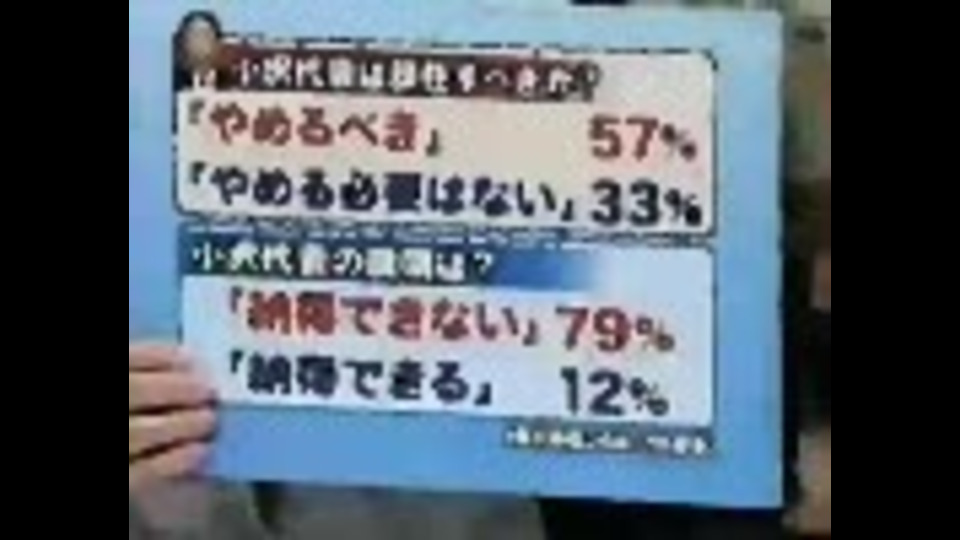 小沢代表は辞任すべきか？
「やめるべき」 57%
「やめる必要はない」 33%
小沢代表の説明は？
「納得できない」 79%
「納得できる」 12%